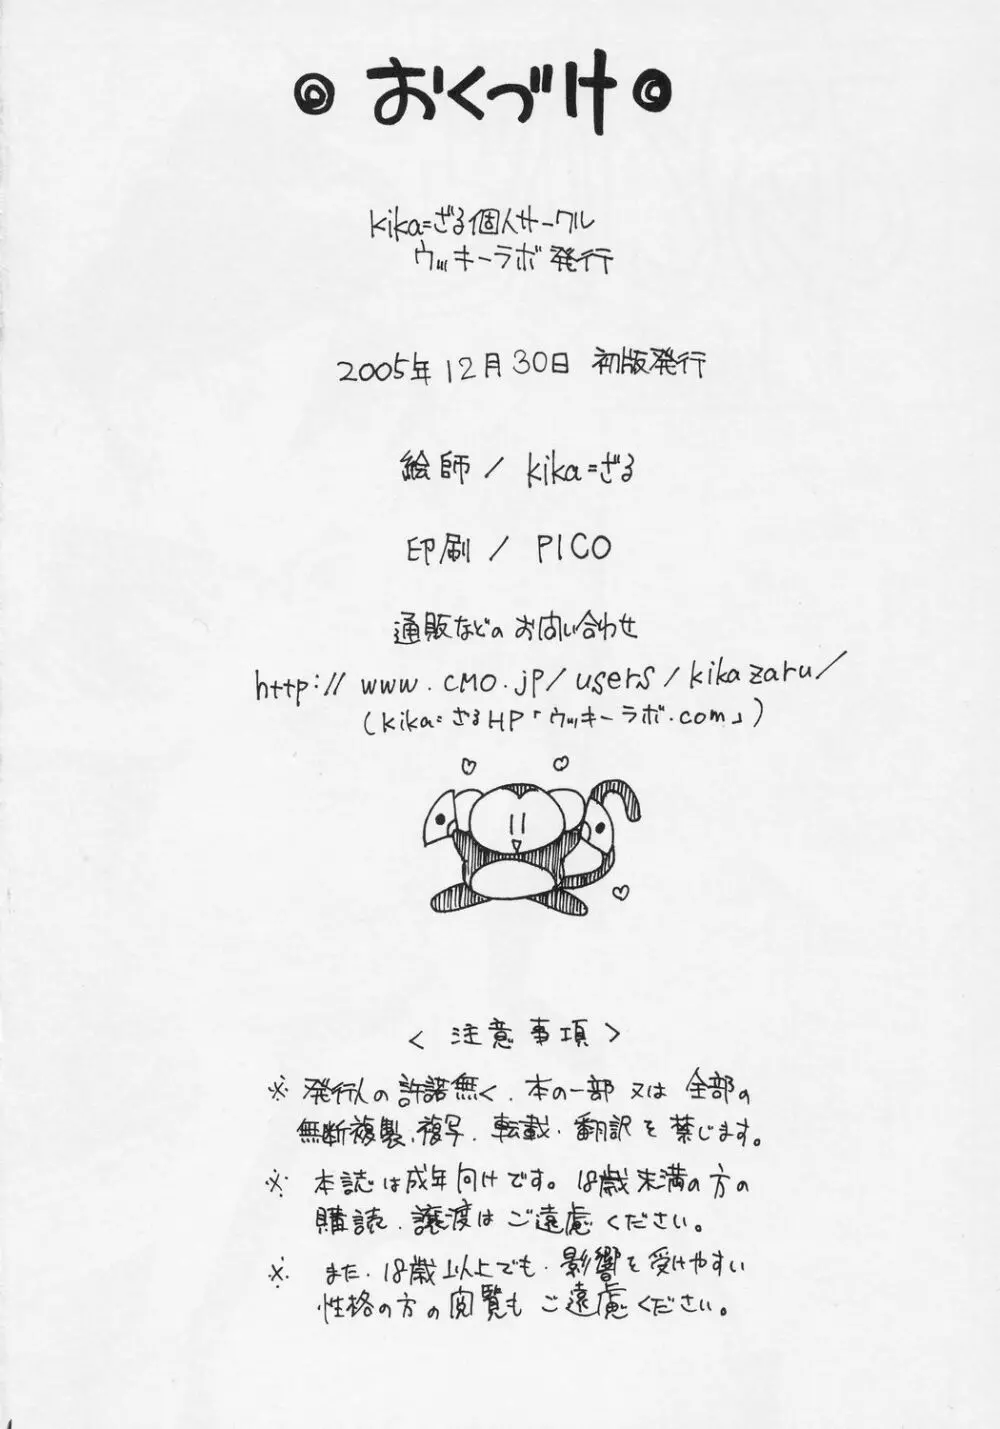 ◎ おくづけ ◎
kika=ざる個人サークル
ウッキーラボ発行
2005年12月30日 初版発行
絵師 / kika=ざる
印刷 / PICO
通販などのお問い合わせ
http://www.cmo.jp/users/kikazaru/
(kika=ざるHP「ウッキーラボ.com」)
< 注意事項 >
※ 発行人の許諾無く、本の一部又は全部の
無断複製、複写、転載、翻訳を禁じます。
※ 本誌は成年向けです。18歳未満の方の
購読、譲渡はご遠慮ください。
※ また、18歳以上でも、影響を受けやすい
性格の方の閲覧もご遠慮ください。